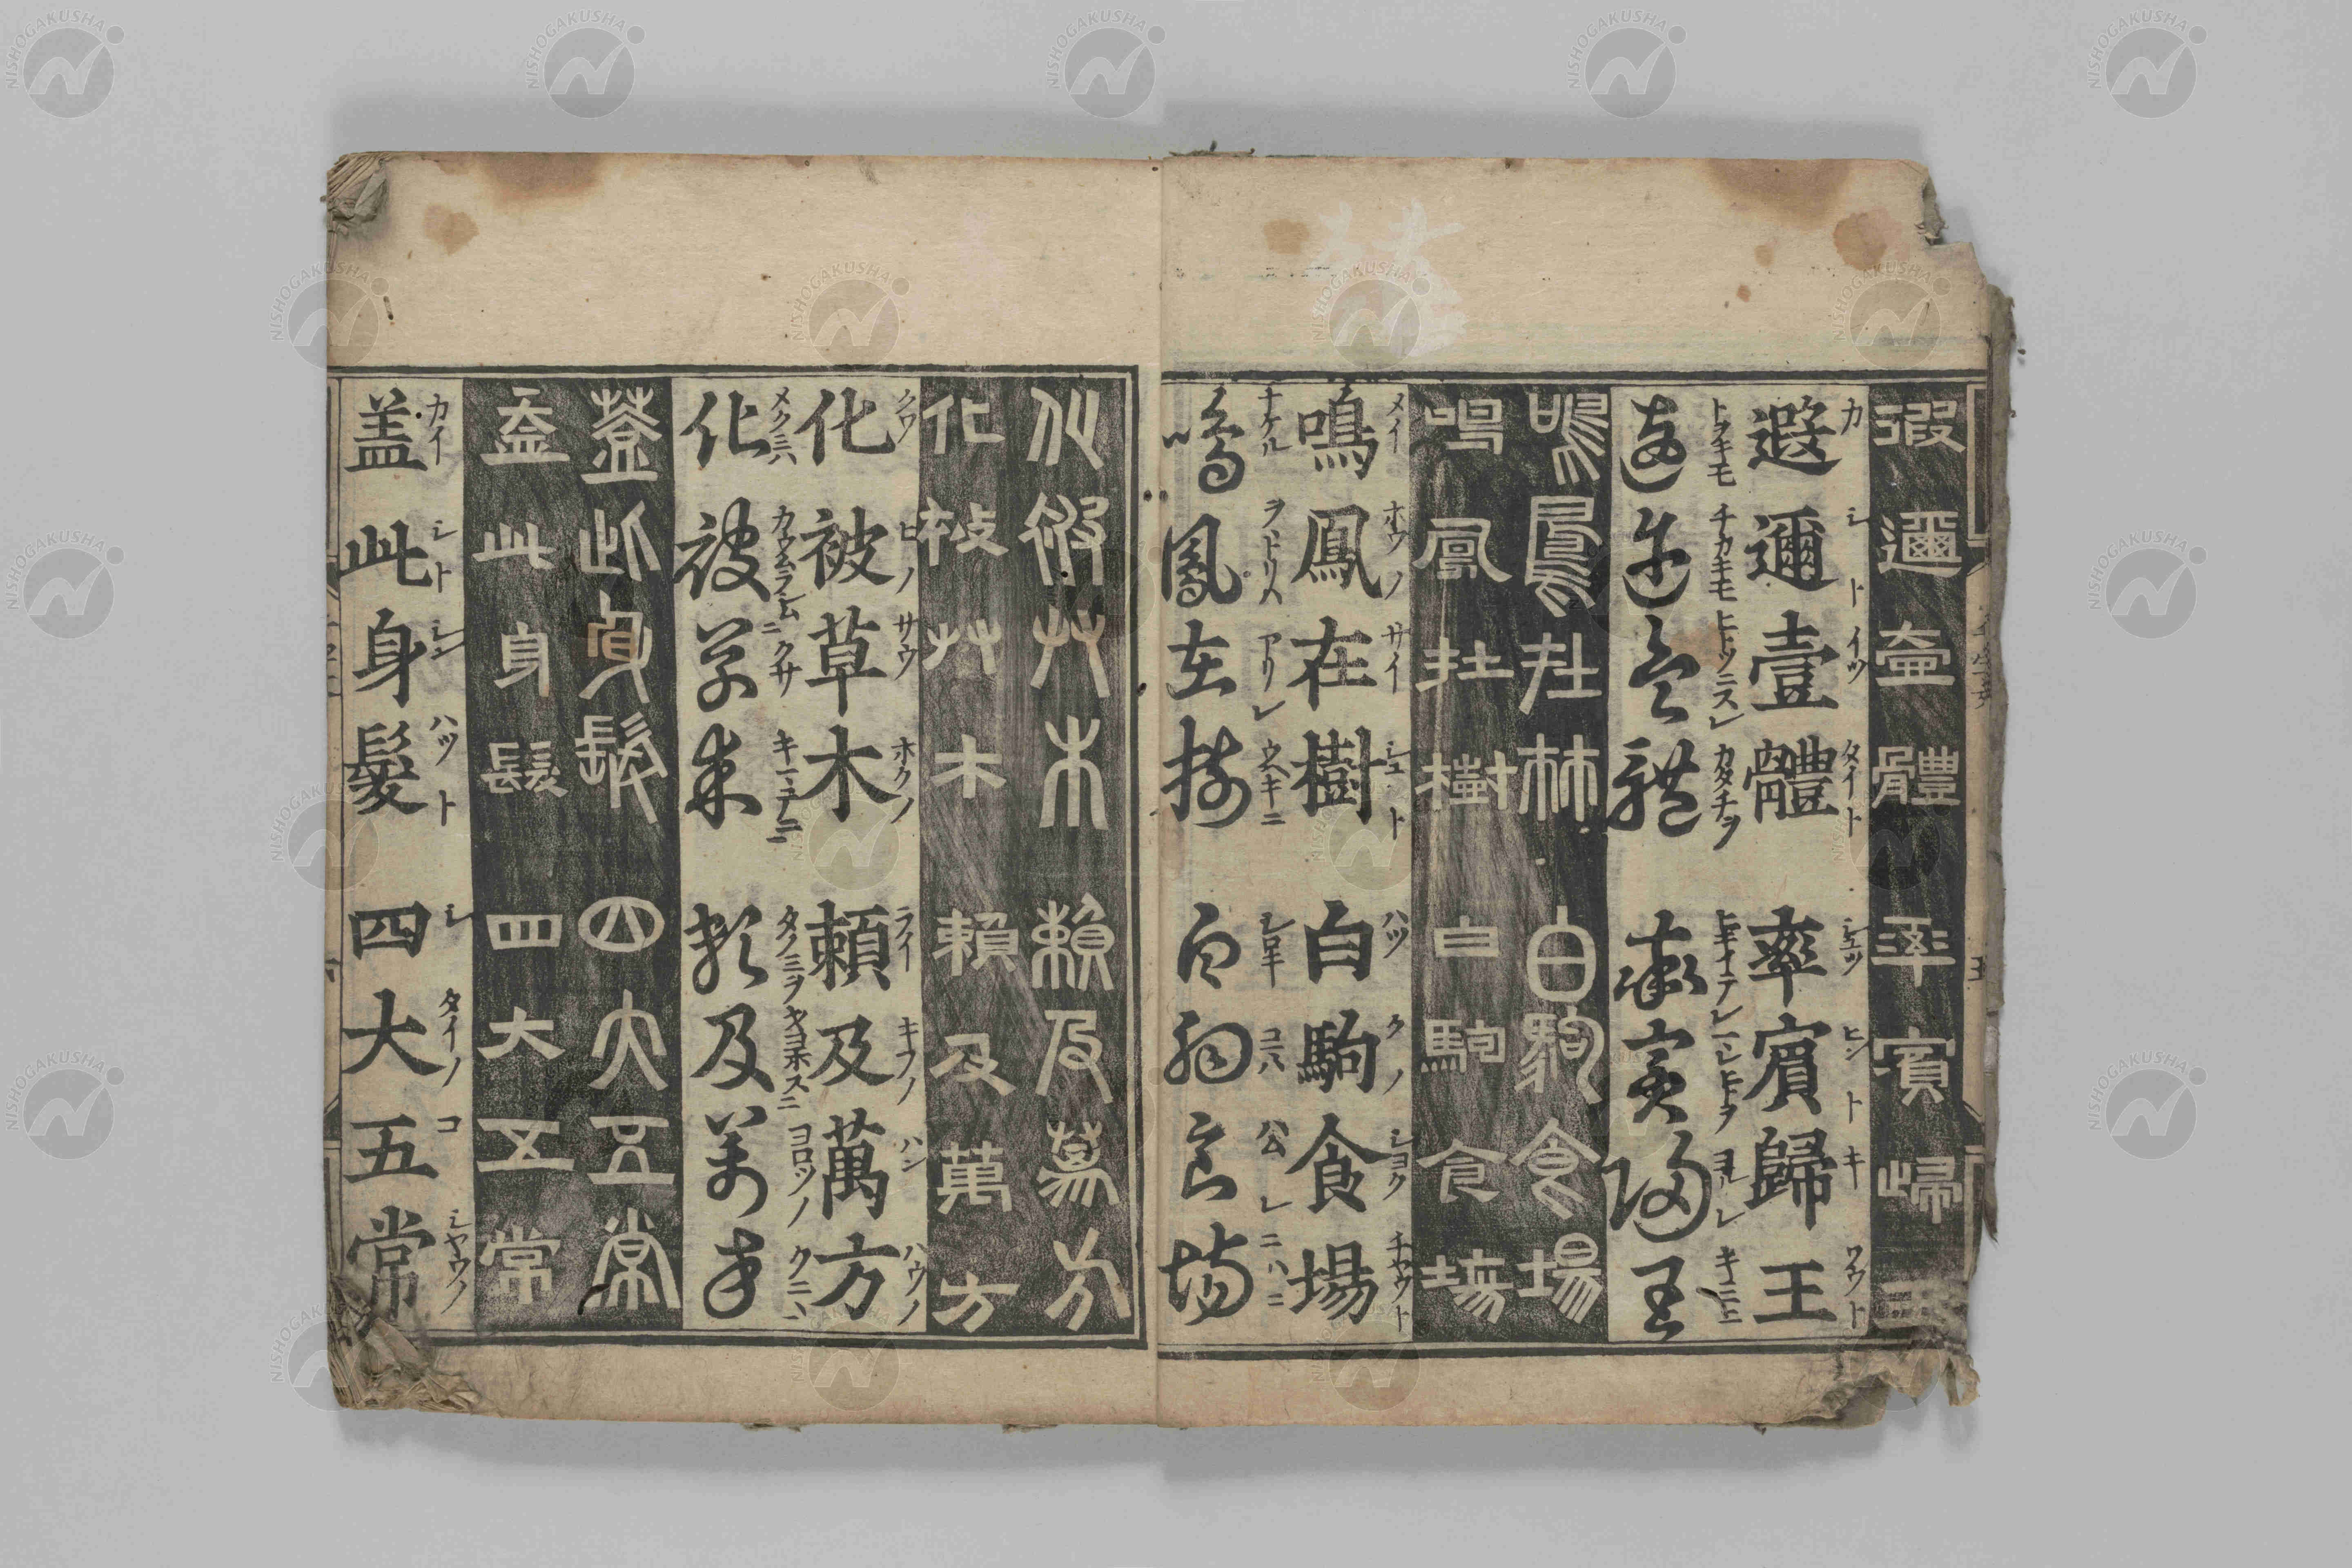 遐邇壹體 率賓歸王
カ シト イツ タイト シユツ ヒント キ ワウト
遐邇壹體 率賓歸王
トヲキモ チカキモ ヒトツニスレ カタチヲ
遐邇壹體 率賓歸王
鳴鳳在樹 白駒食場
鳴鳳在樹 白駒食場
メイ ホウノ サイ シユト ハツ クノ シヨク チヤウト
鳴鳳在樹 白駒食場
ナケル ヲヽトリハ アリレ ウヘキニ シロキ コマ ハムレ ニハニ
鳴鳳在樹 白駒食場
化被草木 賴及萬方
化被草木 賴及萬方
クワ ヒノ サウ ホクノ ライ キフノ ハン ハウノ
化被草木 頼及萬方
メクミ カウムラシム クサ キマテニ タノミヲ ヲヨホスニ ヨロツノ クニヽ
化被草木 頼及萬方
蓋此身髮 四大五常
盖此身髮 四大五常
カイ シト シン ハツト シ タイノ コ シヤウノ
盖此身髮 四大五常
NISHOGAKUSHA